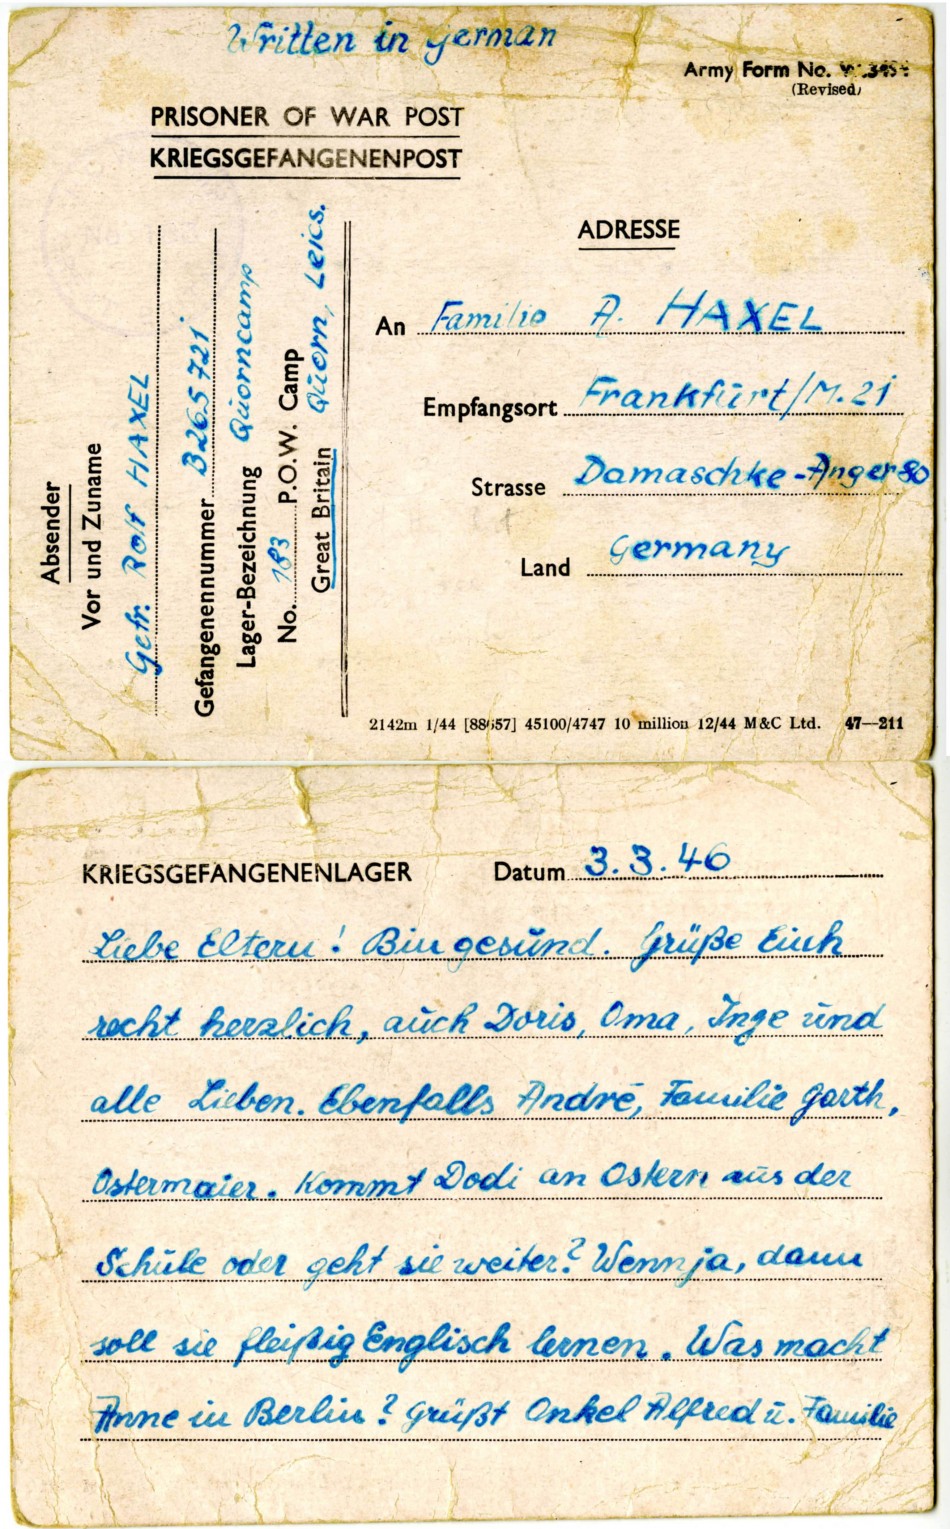 Written in German
Army Form No.
(Revised)
PRISONER OF WAR POST
KRIEGSGEFANGENENPOST
Absender
Vor und Zuname
Gefr. Rolf HAXEL
Gefangenennummer B265721
Lager-Bezeichnung Quorncamp
No. 183 P.O.W. Camp
Great Britain Quorn, Leics.
ADRESSE
An Familie A. HAXEL
Empfangsort Frankfurt/M. 21
Strasse Damaschke-Anger 80
Land Germany
2142m 1/44 [88657] 45100/4747 10 million 12/44 M&C Ltd. 47—211
KRIEGSGEFANGENENLAGER Datum 3.3.46
Liebe Eltern! Bin gesund. Grüße Euch
recht herzlich, auch Doris, Oma, Inge und
alle Lieben. Ebenfalls André, Familie Garth,
Ostermaier. Kommt Dodi an Ostern aus der
Schule oder geht sie weiter? Wenn ja, dann
soll sie fleißig Englisch lernen. Was macht
Anne in Berlin? Grüßt Onkel Alfred u. Familie